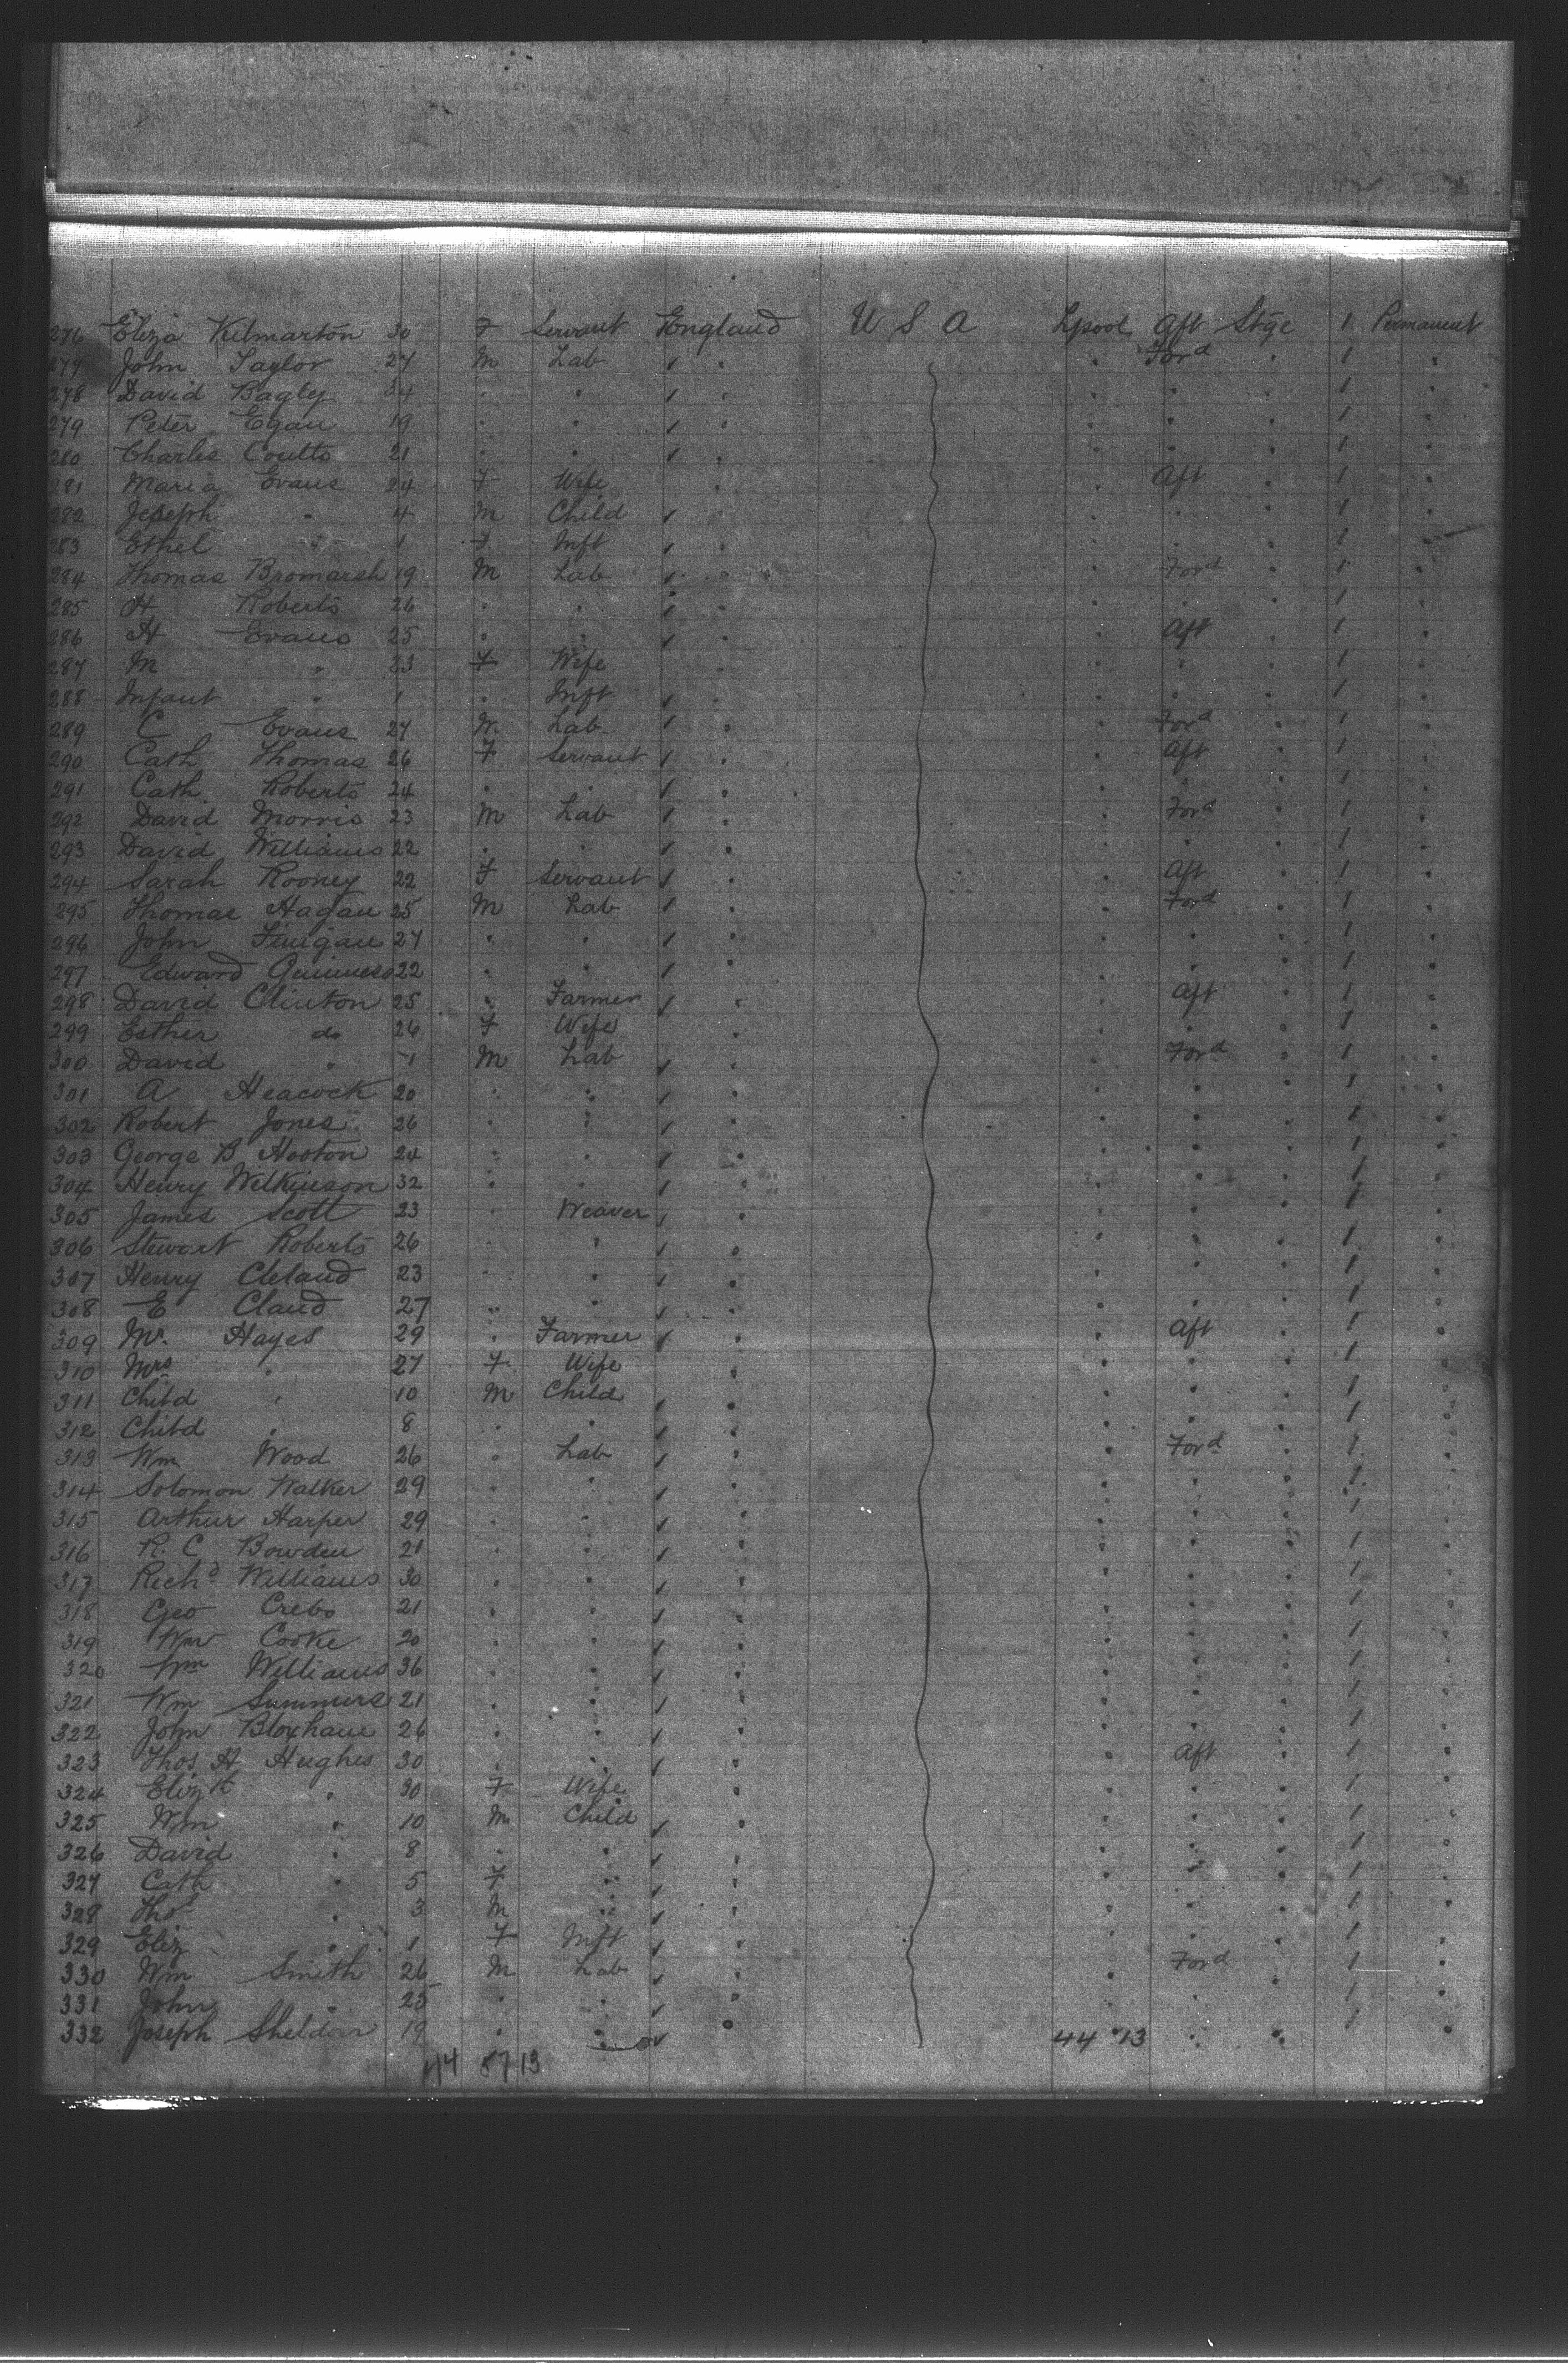 276 Eliza Kilmarton 30 F Servant England U S A Lpool Aft Stge 1 Permanent
277 John Taylor 27 M Lab " " Ford " 1 "
278 David Bagley 24 " " " " " " 1 "
279 Peter Egan 19 " " " " " " 1 "
280 Charles Coutts 21 " " " " " " 1 "
281 Maria Evans 24 F Wife " " Aft " 1 "
282 Joseph " 4 M Child " " " " 1 "
283 Ethel " 1 F Inft " " " " 1 "
284 Thomas Bromarsh 19 M Lab " " Ford " 1 "
285 H Roberts 26 " " " " " " 1 "
286 H Evans 25 " " " " Aft " 1 "
287 M " 23 F Wife " " " " 1 "
288 Infant " 1 " Inft " " " " 1 "
289 C Evans 27 M Lab " " Ford " 1 "
290 Cath Thomas 26 F Servant " " Aft " 1 "
291 Cath Roberts 24 " " " " " " 1 "
292 David Morris 23 M Lab " " Ford " 1 "
293 David Williams 22 " " " " " " 1 "
294 Sarah Rooney 22 F Servant " " Aft " 1 "
295 Thomas Hagan 25 M Lab " " Ford " 1 "
296 John Finigan 27 " " " " " " 1 "
297 Edward Guinness 22 " " " " " " 1 "
298 David Clinton 25 " Farmer " " Aft " 1 "
299 Esther do 26 F Wife " " " " 1 "
300 David " M Lab " " Ford " 1 "
301 A Heacock 20 " " " " " " 1 "
302 Robert Jones 26 " " " " " " 1 "
303 George B Hooton 24 " " " " " " 1 "
304 Henry Wilkinson 32 " " " " " " 1 "
305 James Scott 23 " Weaver " " " " 1 "
306 Stewart Roberts 26 " " " " " " 1 "
307 Henry Cleland 23 " " " " " " 1 "
308 E Cland 27 " " " " " " 1 "
309 Mr. Hayes 29 " Farmer " " Aft " 1 "
310 Mrs " 27 F Wife " " " " 1 "
311 Child " 10 M Child " " " " 1 "
312 Child " 8 " " " " " " 1 "
313 Wm Wood 26 " Lab " " Ford " 1 "
314 Solomon Walker 29 " " " " " " 1 "
315 Arthur Harper 29 " " " " " " 1 "
316 R. C Bowden 21 " " " " " " 1 "
317 Richd Williams 30 " " " " " " 1 "
318 Geo Crebs 21 " " " " " " 1 "
319 Wm Cooke 20 " " " " " " 1 "
320 Wm Williams 36 " " " " " " 1 "
321 Wm Summers 21 " " " " " " 1 "
322 John Bloxham 26 " " " " " " 1 "
323 Thos H Hughes 30 " " " " Aft " 1 "
324 Elizth " 30 F Wife " " " " 1 "
325 Wm " 10 M Child " " " " 1 "
326 David " 8 " " " " " " 1 "
327 Cath " 5 F " " " " " 1 "
328 Thos " 3 M " " " " " 1 "
329 Eliz " 1 F Inft " " " " 1 "
330 Wm Smith 26 M Lab " " Ford " 1 "
331 John " 25 " " " " " " 1 "
332 Joseph Sheldon 19 " " " 44 13 " " 1 "
44 57 13